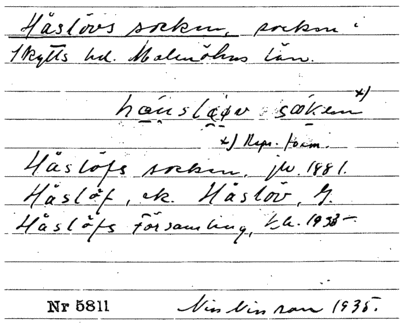 Håslövs socken, socken i
Skytts hd. Malmöhus län.
x) Repr. form.
Håslöfs socken, jb 1881.
Håslöf, ek. Håslöv, G.
Håslöfs Församling, kb. 1933-
Nr 5811 1935.